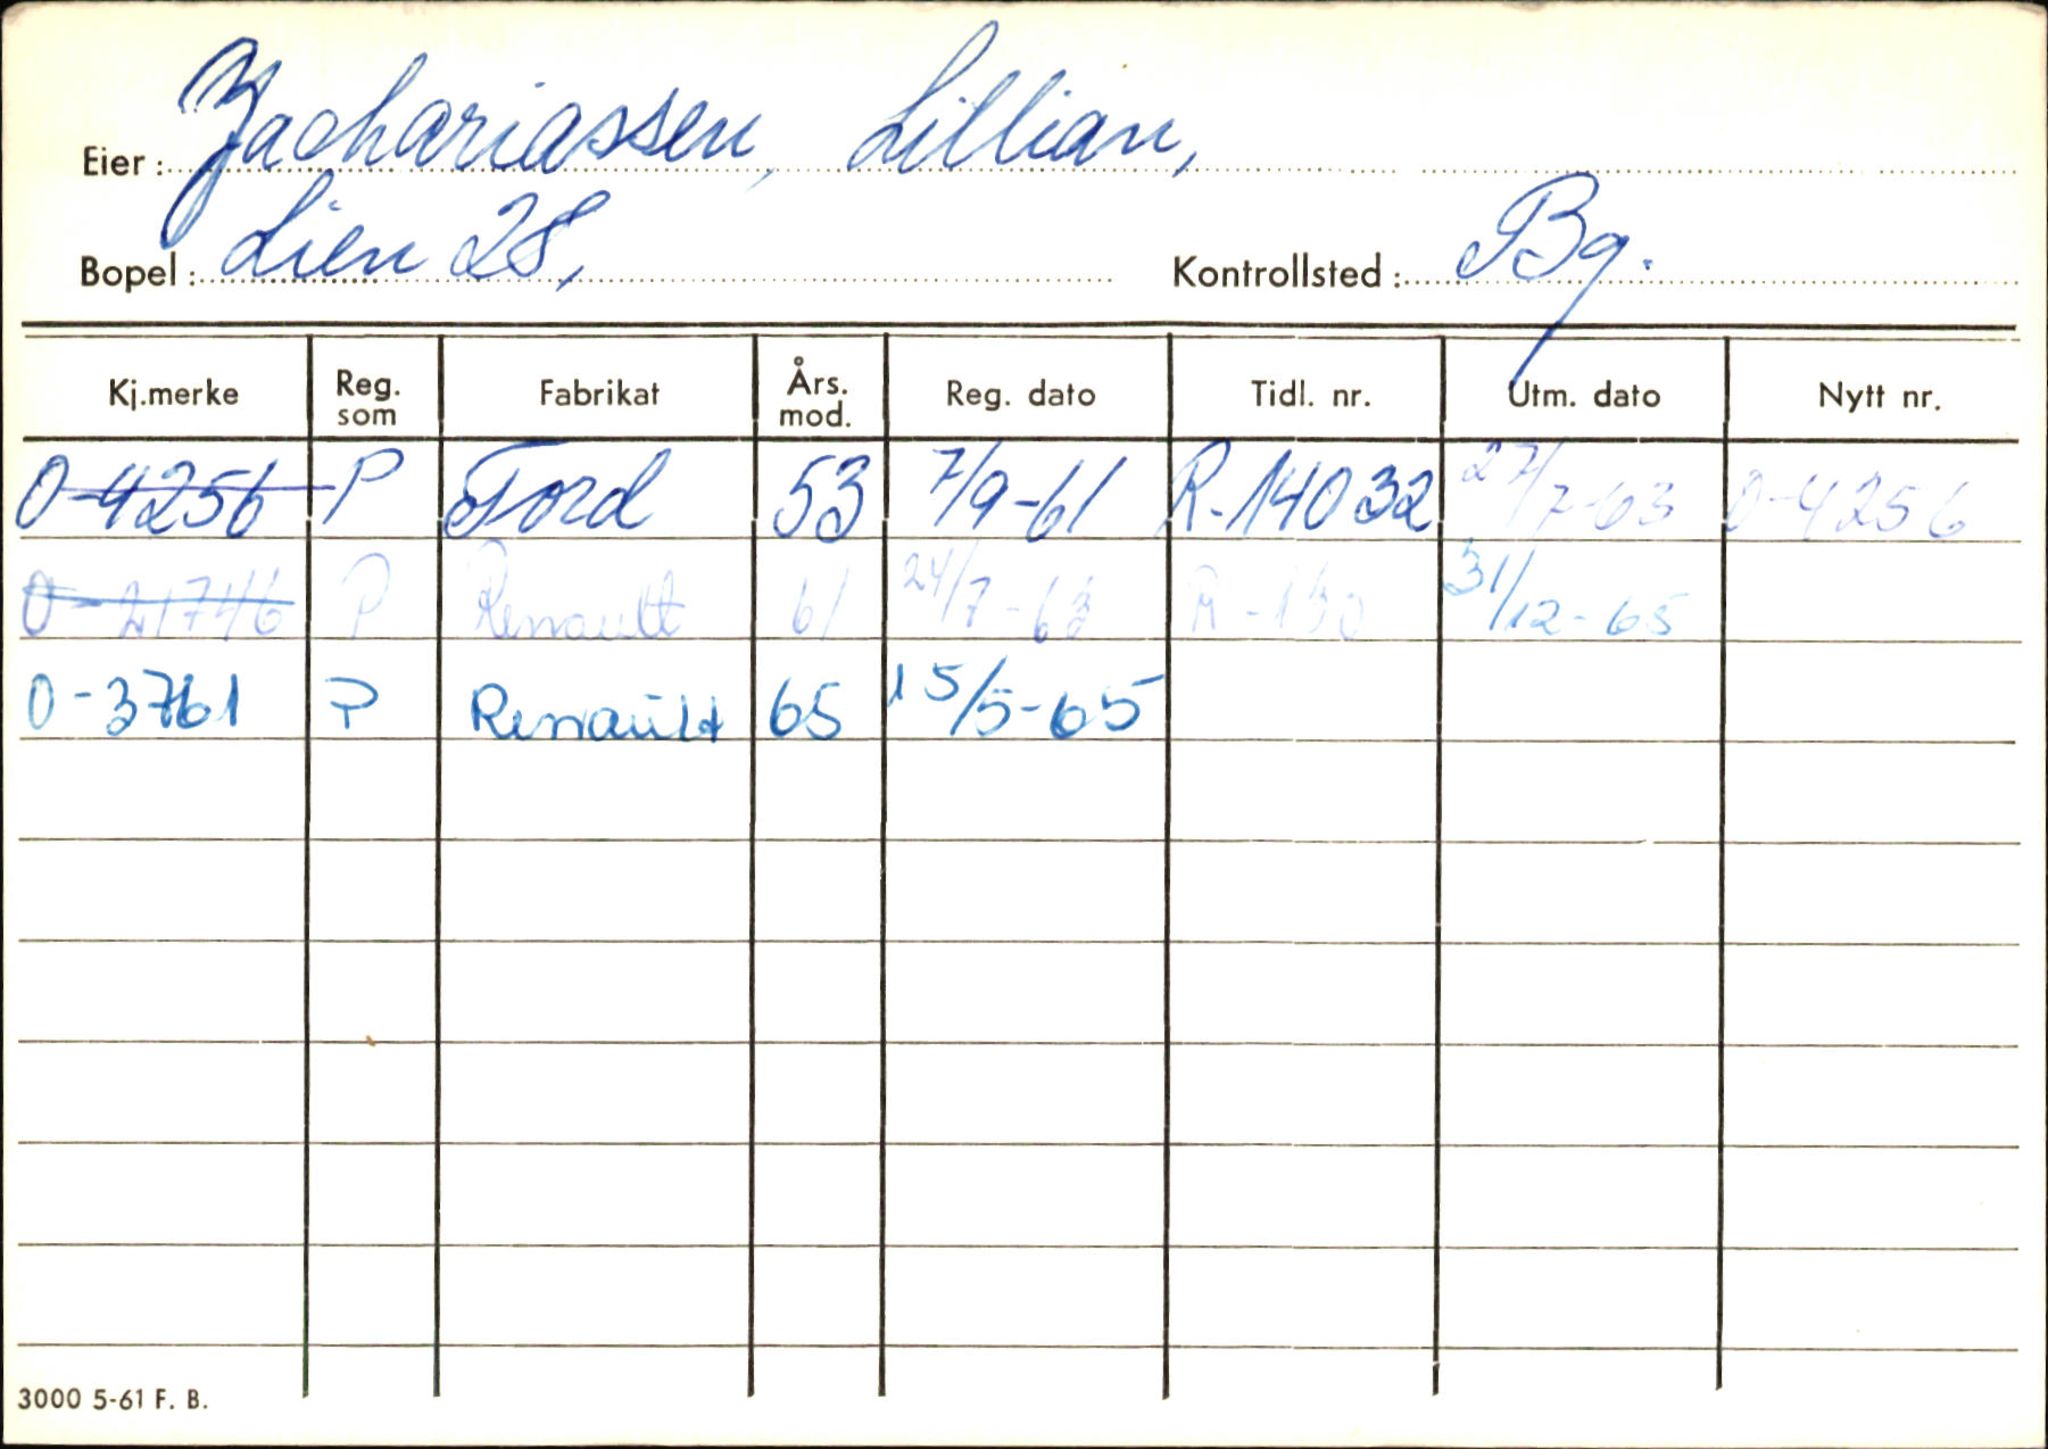 Eier: Zachariassen, Lillian,
Bopel: Lien 28, Kontrollsted: Bg.
Kj.merke Reg. som Fabrikat Års. mod. Reg. dato Tidl. nr. Utm. dato Nytt nr.
O-4256 P Ford 53 7/9-61 R-14032 27/7-63 O-4256
O-21746 P Renault 61 24/7-63 R-130 31/12-65
O-3761 P Renault 65 15/5-65
3000 5-61 F. B.